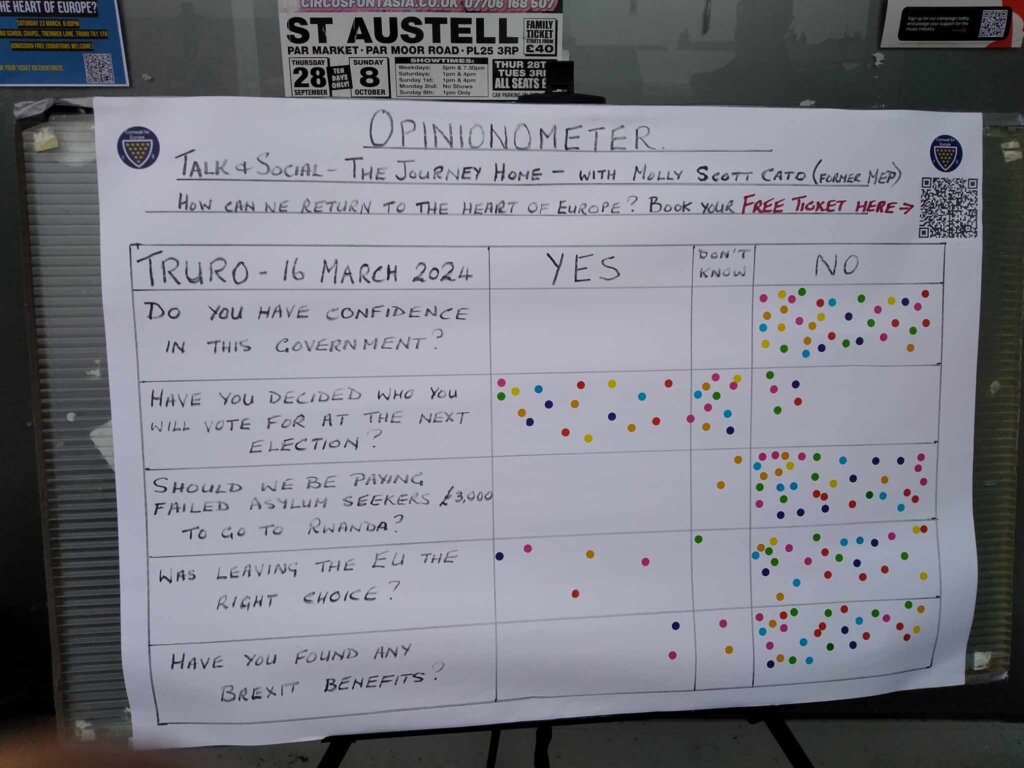 THE HEART OF EUROPE?
SATURDAY 23 MARCH, 6:00PM
SCHOOL CHAPEL, TREWNICK LANE, TRURO TR1 1TH
ADMISSION FREE (DONATIONS WELCOME)
YOUR TICKET ON EVENTBRITE:
CIRCUSFUNTASIA.CO.UK 07706 168 507
ST AUSTELL
FAMILY
TICKET
STARTS FROM
£40
PAR MARKET · PAR MOOR ROAD · PL25 3RP
THURSDAY
28
SEPTEMBER
TEN
DAYS
ONLY!
SUNDAY
8
OCTOBER
SHOWTIMES:
Weekdays: 5pm & 7.30pm
Saturdays: 1pm & 4pm
Sunday 1st: 1pm & 4pm
Monday 2nd: No Shows
Sunday 8th: 1pm Only
THUR 28T
TUES 3RD
ALL SEATS £
CAR PARKING
Sign up for our campaign today
and pledge your support for the
music industry
Cornwall for
Europe
OPINIONOMETER.
TALK & SOCIAL - THE JOURNEY HOME - WITH MOLLY SCOTT CATO (FORMER MEP)
HOW CAN WE RETURN TO THE HEART OF EUROPE? BOOK YOUR FREE TICKET HERE →
TRURO - 16 MARCH 2024
YES
DON'T
KNOW
NO
DO YOU HAVE CONFIDENCE
IN THIS GOVERNMENT?
HAVE YOU DECIDED WHO YOU
WILL VOTE FOR AT THE NEXT
ELECTION?
SHOULD WE BE PAYING
FAILED ASYLUM SEEKERS £3,000
TO GO TO RWANDA?
WAS LEAVING THE EU THE
RIGHT CHOICE?
HAVE YOU FOUND ANY
BREXIT BENEFITS?